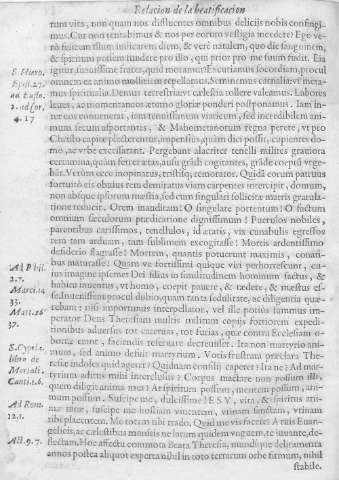 Relacion de la beatificacion
rum vita, non quam nos diffluentes omnibus delicijs nobis confingi-
mus. Cur non tentabimus & nos per eorum vestigia incedere? Ego ve-
rò fusissem illum indicarem diem, & verè natalem, quo dic sanguinem,
& spiritum possem fundere pro illo, qui prior pro me fuum fudit. Eia
igitur, suauissime frater, quid moramur? Excutiamus socordiam, procul
omnem ex animo molitiem repellamus. Eminemus carnali ... metu
S. Hiero.
Epist. 27.
ad Eusto.
2. ad Cor.
4. 17
mus spiritualia. Demus terrestria, vt cælestia tollere valeamus. Labores
leues, ac momentaneos æterno gloriæ ponderi postponamus. Iam in-
ter eos connumerat, iam tenuissimum viaticum, sed incredibilem ani-
mum secum asportantes, & Mahometanorum regna petere, vt pro
Christo capite plecterentur, impensiùs, quàm dici possit, cupientes do-
mo, ac vrbe excesserant. Pergebant alacriter tenelli milites grauiora
certamina, quàm ferret ætas, ausu grādi cogitantes, grāde cœptū vrge-
bāt. Verùm ecce inopinatus, tristisq; remorator. Quidā eorum patruus
fortuitò eis obuius rem demiratus viam carpentes intercipit, domum,
non absque ipsorum mæstitia, sed cum singulari sollicitæ matris gratula-
tione reducit. Orem inauditam! O singulare portentum! O factum
omnium sæculorum prædicatione dignissimum! Puerulos nobiles,
parentibus carissimos, tenellulos, id ætatis, vix cunabulis egressos
rem tam arduam, tam sublimem excogitasse! Mortis ardenissimo
desiderio flagrasse! Mortem, quantis potuerunt maximis, conati-
bus maturasse! Quam ve fortissimi quique viri perhorrescunt, ea-
tius imagine ipsimet Dei filius in similitudinem hominum factus, &
habitu inuentus, vt homo, coepit pauere, & tædere, & mæstus es-
se. Inuenissent procul dubio, quam tanta sedulitate, ac diligentia quæ-
rebant: nisi importunus interpellator, vel ille potiùs summus im-
perator Deus Theresiam multis militum copijs fortiorem expedi-
Ad Phil.
2. 7.
Matt. 14
33.
Matt. 26
37.
tionibus aduersus tot cateruas, tot furias, quæ contra Ecclesiam o-
borta erant, faciendis reseruare decreuisset. Ita non martyrio ani-
mum, sed animo defuit martyrium. Votis frustrata præclara The-
resiæ indoles quid ageret? Quidnam consilij caperet? Ita ne? Ad mar-
tyrium aditus mihi interclusus? Corpus mactare non possum illi,
quem diligit anima mea? At spiritum possum, mentem possum, ani-
mum possum. Suscipe me, dulcissime IESV, vita, & spiritus ani-
mæ meæ, suscipe me hostiam viuentem, vtinam sanctam, vtinam
tibi placentem. Me totam tibi trado. Quid me vis facere? A tuis Euan-
gelicis, ac cælestibus monitis ne latum quidem vnguem, te iuuante, de-
S. Cypria.
libro de
Mortali.
Cant. 1. 6.
Ad Rom.
12. 1.
Act. 9. 7.
flectam. Hoc affectu commota Beata Theresia, mundi que deliramenta
annos postea aliquot experta nihil in toto terrarum orbe firmum, nihil
stabile.